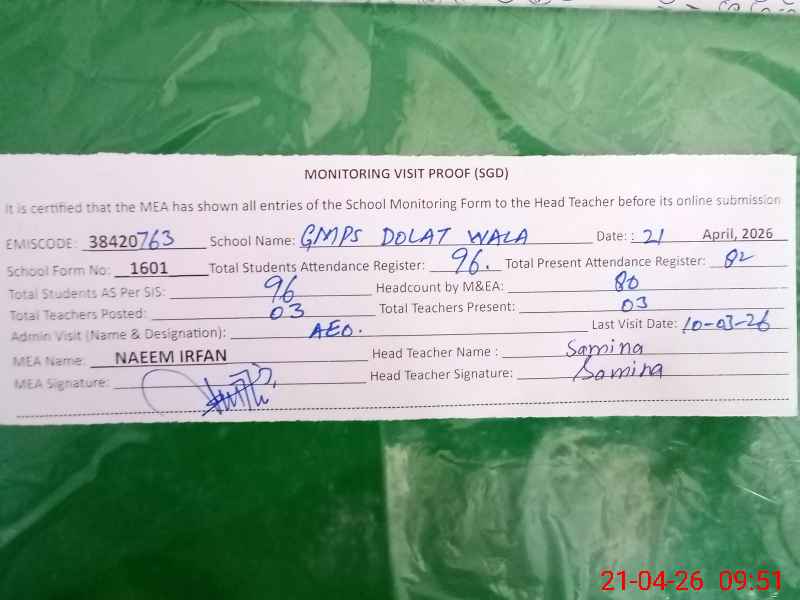 MONITORING VISIT PROOF (SGD)
It is certified that the MEA has shown all entries of the School Monitoring Form to the Head Teacher before its online submission
EMISCODE: 38420763 School Name: GMPS DOLAT WALA Date: : 21 April, 2026
School Form No: 1601 Total Students Attendance Register: 96. Total Present Attendance Register: 82
Total Students AS Per SIS: 96 Headcount by M&EA: 80
Total Teachers Posted: 03 Total Teachers Present: 03
Admin Visit (Name & Designation): AEO. Last Visit Date: 10-03-26
MEA Name: NAEEM IRFAN Head Teacher Name : Samina
MEA Signature: Head Teacher Signature: Samina
21-04-26 09:51